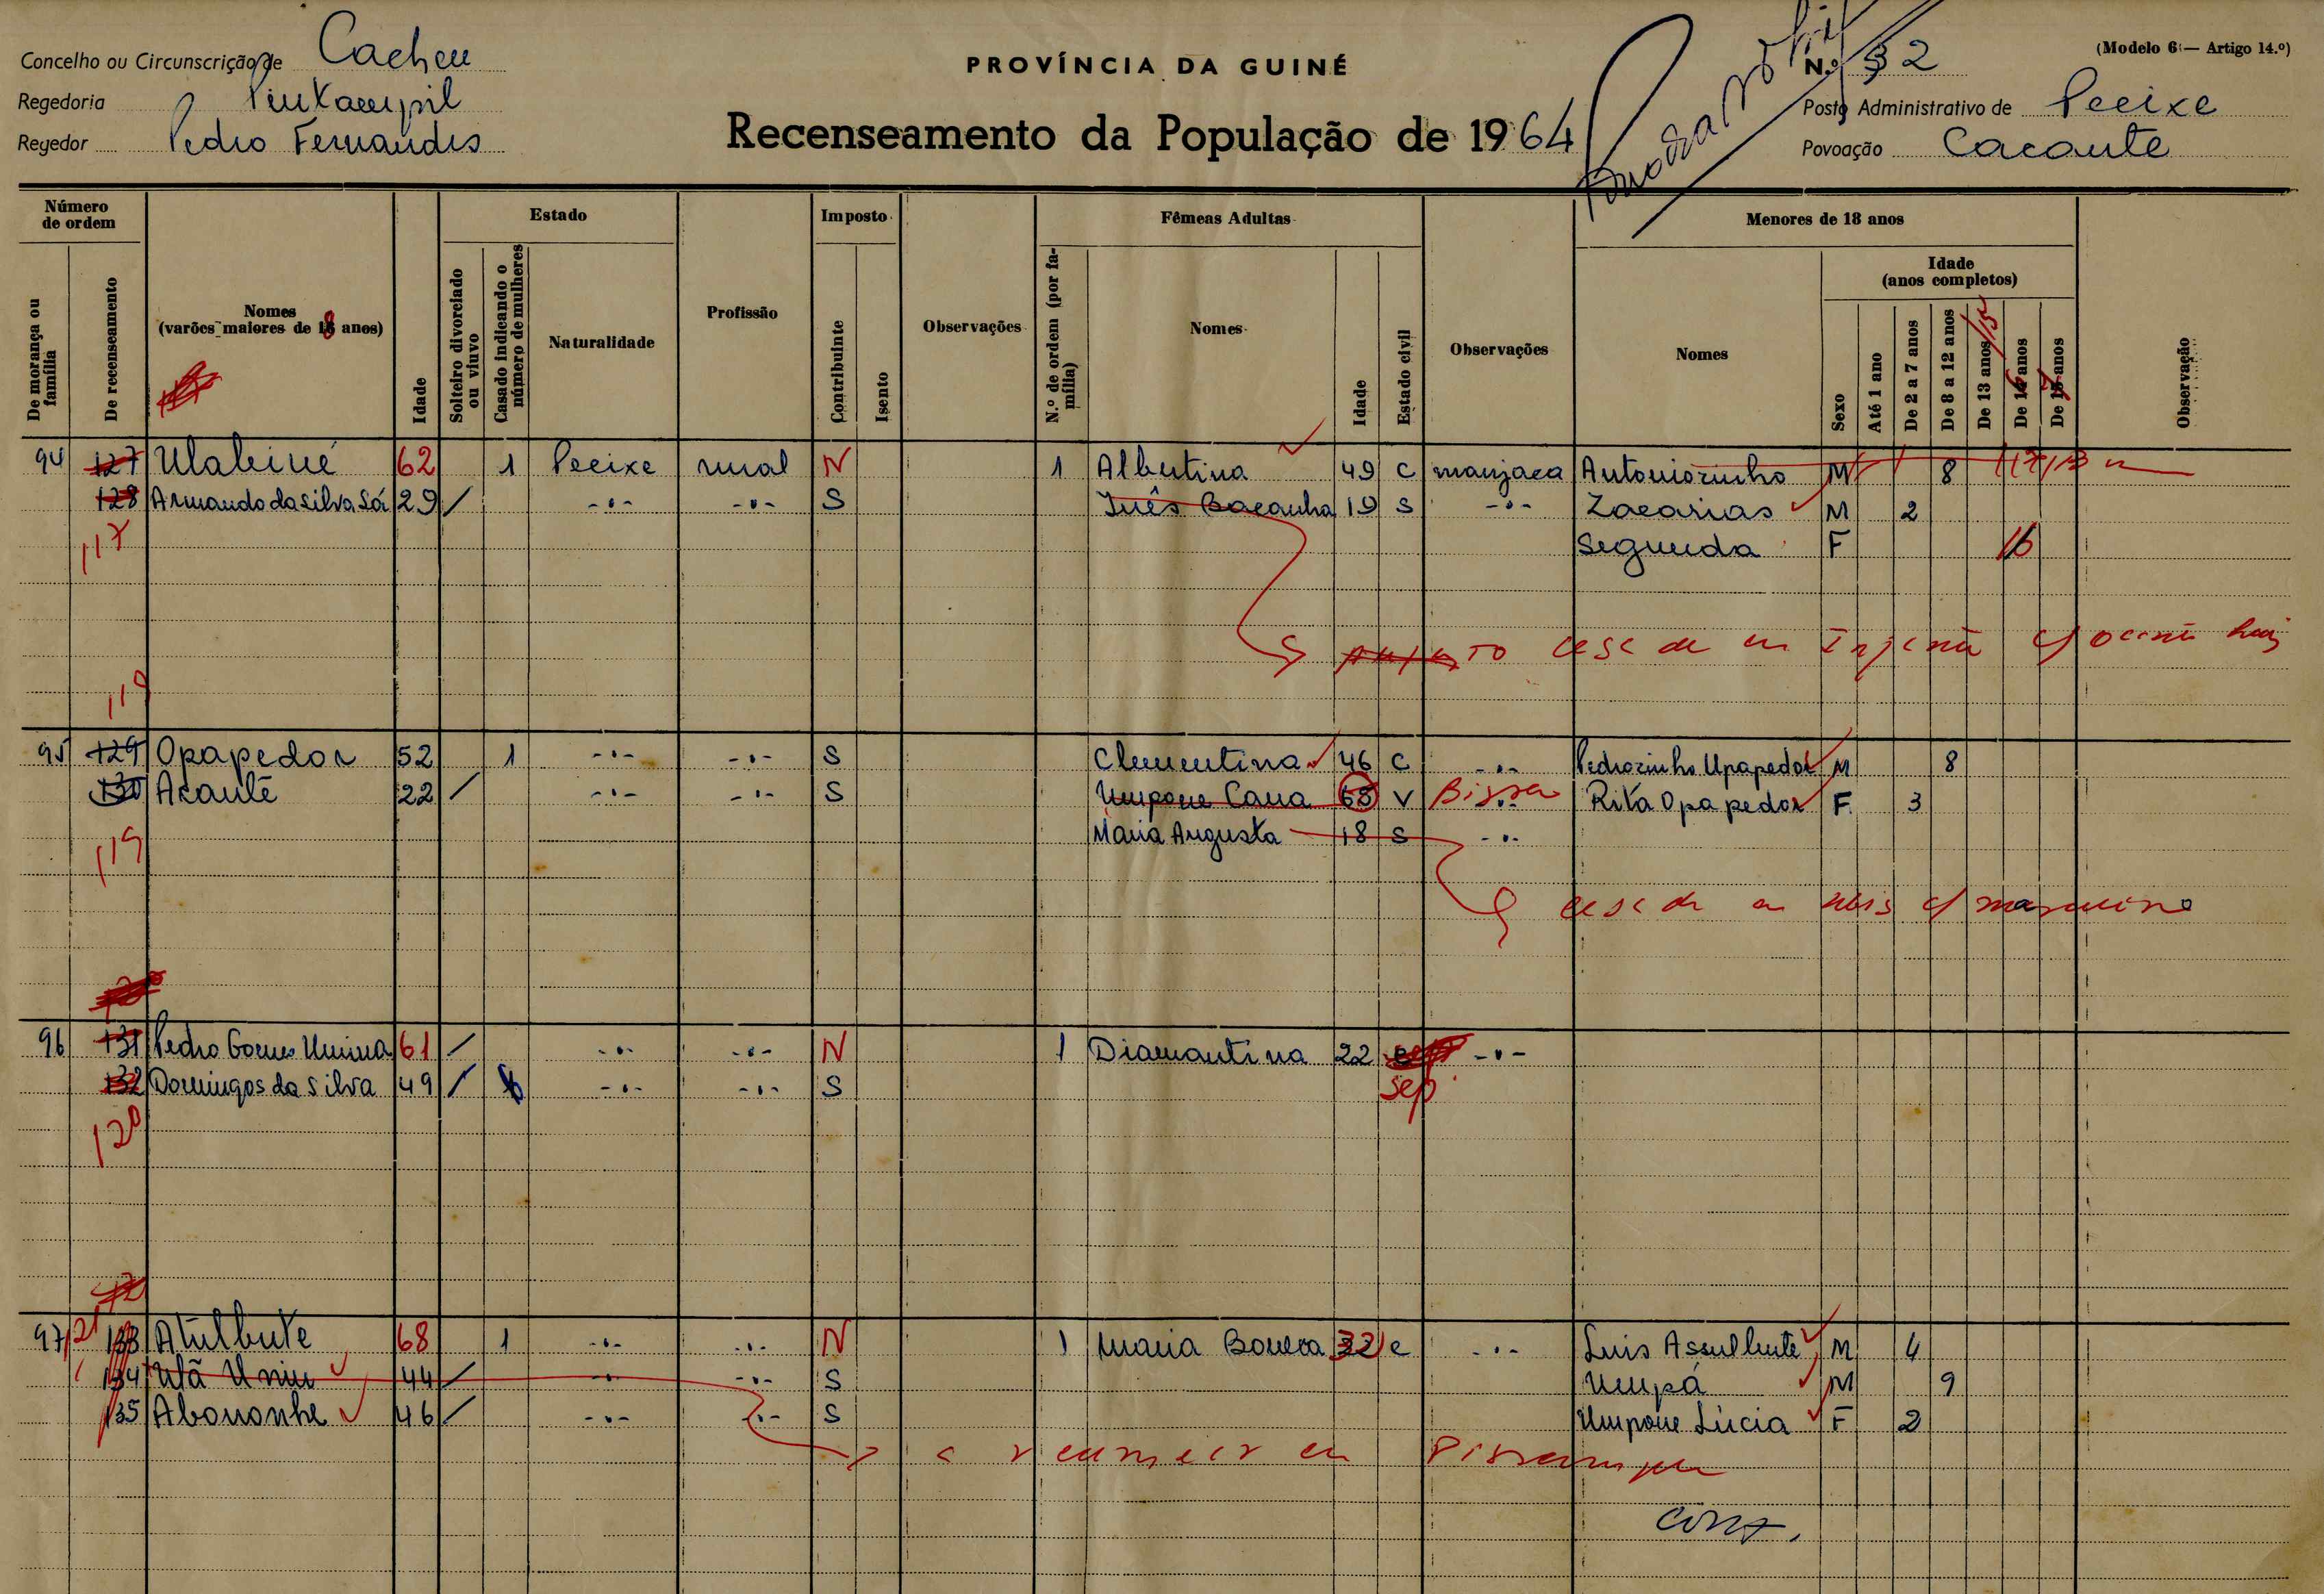 Concelho ou Circunscrição de Cacheu
Regedoria
Regedor Pedro Fernandes
PROVÍNCIA DA GUINÉ
Recenseamento da População de 1964
(Modelo 6 — Artigo 14.º)
N.º 32
Posto Administrativo de Pecixe
Povoação Cacante
Número de ordem
De morança ou família
De recenseamento
Nomes
(varões maiores de 18 anos)
Idade
Estado
Solteiro divorciado ou viuvo
Casado indicando o número de mulheres
Naturalidade
Profissão
Imposto
Contribuinte
Isento
Observações
Fêmeas Adultas
N.º de ordem (por família)
Nomes
Idade
Estado civil
Observações
Menores de 18 anos
Nomes
Sexo
Idade
(anos completos)
Até 1 ano
De 2 a 7 anos
De 8 a 12 anos
De 13 anos /15
De 16 anos
De 17 anos
Observação
94 127 Ulabiné 62 1 Pecixe rural N 1 Albertina 49 C manjaca Antoniozinho M 8
128 Armando da Silva Sá 29 / -"- -"- S Inês Bacanha 19 S -"- Zacarias M 2
117 Segunda F 16
95 129 Opapedor 52 1 -"- -"- S Clementina 46 C -"- Pedrozinho Upapedor M 8
130 Acauté 22 / -"- -"- S Umpone Cana 68 V Bissau Rita Opapedor F. 3
119 Maria Augusta 18 S -"-
96 131 Pedro Gomes Umina 61 / -"- -"- N 1 Diamantina 22 -"-
132 Domingos da Silva 49 / -"- -"- S sep.
120
97 121 133 Atulbute 68 1 -"- -"- N 1 Maria 32 c -"- Luis Assulbute M 4
134 Utã Uniu 44 / -"- -"- S Umpá M 9
135 Abononhe 46 / -"- -"- S Umpone Lúcia F 2
cont.